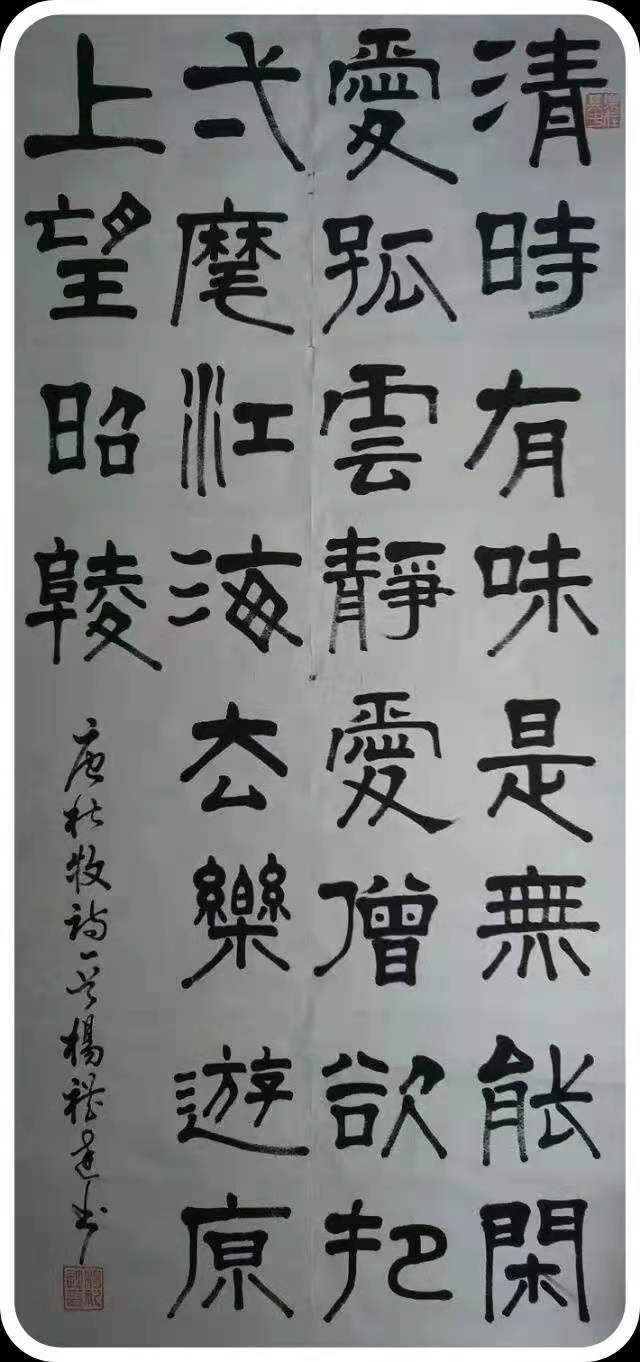 清時有味是無能閑
愛孤雲靜愛僧欲把
弌麾江海去樂遊原
上望昭陵
唐杜牧詩一首楊書